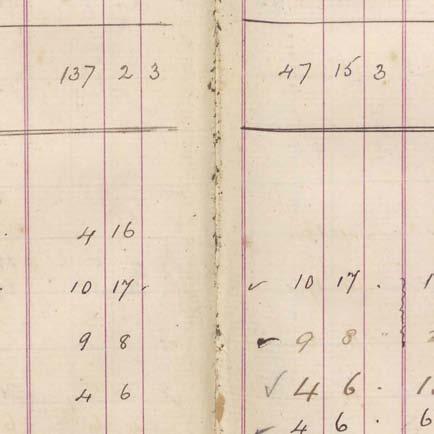 137 2 3
4 16
10 17
9 8
4 6
47 15 3
✓ 10 17 . 1
✓ 9 8
✓ 4 6 . 1
✓ 4 6 . 6